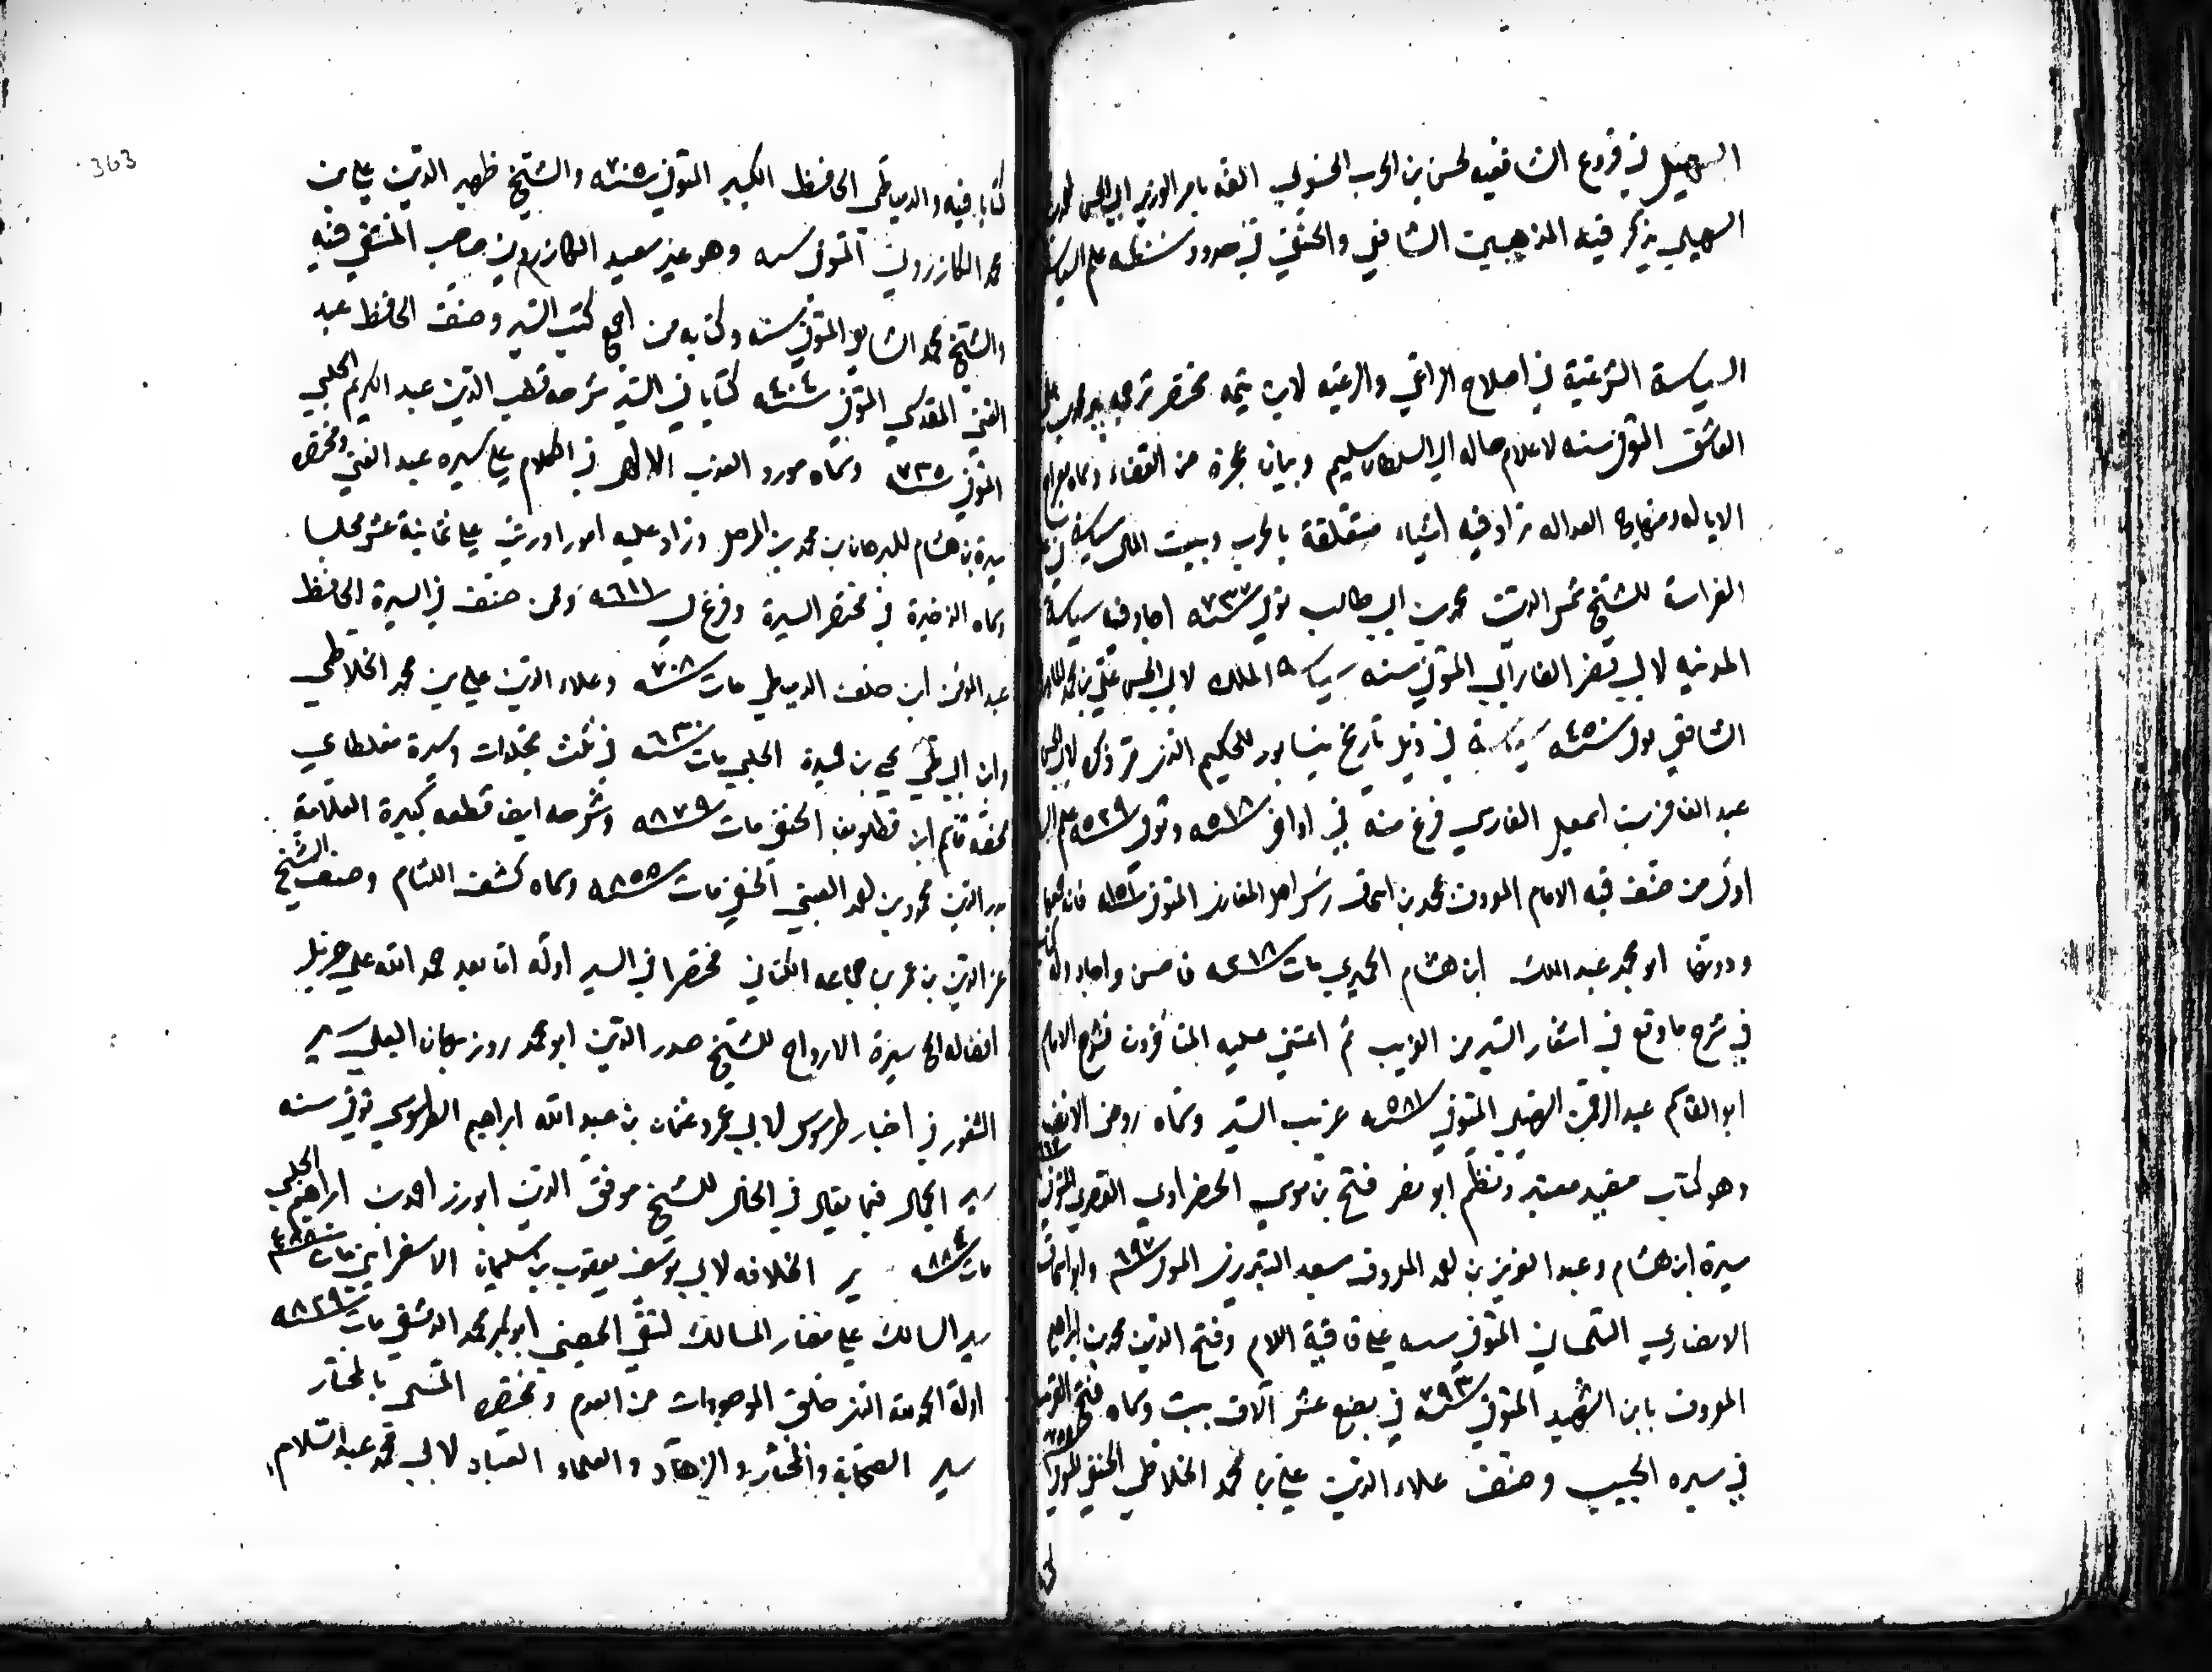 السهيل في فروع الشافعيه لحسن بن الحرب الحسولي الفه بامر الوزير ابي الحسن
السهيلي يذكر فيه المذهبين الشافعي والحنفي في حدود سنة علم السياسة
السياسة الشرعية في اصلاح الراعي والرعيه لابن تيميه مختصر ترجمه پير محمد بن علي
العاشق المتوفى سنه لاعلام حاله الي السلطان سليم وبيان عجزه من القضاء وسماه معراج
الاياله ومنهاج العداله زاد فيه اشياء متعلقة بالحرب وبيت المال سياسة في
الفراسة للشيخ شمس الدين محمد بن ابي طالب توفي ٧٣٧ اجاد فيه سياسة
المدنيه لابي نصر الفارابي المتوفى سنه سياسة الملك لابي الحسن علي بن محمد
الشافعي توفى ٤٥٠ سياسة في ذيل تاريخ نيسابور للحكيم الذي مر ذكره لابي الحسن
عبد الغافر بن اسمعيل الفارسي فرغ منه في اواخر ٥١٨ وتوفي ٥٢٩ علم السير
اول من صنف فيه الامام المعروف محمد بن اسحاق رئيس اهل المغازي المتوفى ١٥١ فانه جمعها
ودونها ابو محمد عبد الملك ابن هشام الحميري مات ٢١٨ فاحسن واجاد وله كتاب
في شرح ما وقع في اشعار السير من الغريب ثم اعتنى عليه المتأخرون فشرح الامام
ابو القاسم عبد الرحمن السهيلي المتوفى ٥٨١ غريب السير وسماه روض الانف
وهو كتاب مفيد معتبر ونظم ابو نصر فتح بن موسي الخضراوي القصري المتوفى
سيرة ابن هشام وعبد العزيز بن احمد المعروف بسعد الديريني المتوفى ٦٩٧ وابو اسحاق
الانصاري التلمساني المتوفى سنه علي قافية اللام وفتح الدين محمد بن ابراهيم
المعروف بابن الشهيد المتوفى ٧٩٣ في بضع عشر آلاف بيت وسماه فتح القريب
في سيره الحبيب وصنف علاء الدين علي بن محمد الخلاطي الحنفي المتوفى ٧٠٨
كتابا فيه والدمياطي الحافظ الكبير المتوفى ٧٠٥ والشيخ ظهير الدين علي بن
محمد الكازروني المتوفى سنه وهو غير سعيد الكازروني صاحب المنتقى فيه
والشيخ محمد الشامي المتوفى سنه وكتابه من اجمع كتب السير وصنف الحافظ عبد
الغني المقدسي المتوفى كتابا في السير شرحه قطب الدين عبد الكريم الحلبي
المتوفى ٧٣٥ وسماه مورد العذب الالهنى في الكلام علي سيره عبد الغني ومختصر
سيرة بن هشام للبرهان بن محمد بن المرحل وزاد عليه امورا ورتب علي ثمانية عشر مجلسا
وسماه الذخيرة في مختصر السيرة وفرغ في ٦١١ وممن صنف في السيرة الحافظ
عبد المؤمن ابن خلف الدمياطي مات ٧٠٨ وعلاء الدين علي بن محمد الخلاطي
وابن ابي طي يحيي بن حميدة الحلبي مات ٦٣٠ في ثلث مجلدات وسيرة مغلطاي
لخصه قاسم ابن قطلوبغا الحنفي مات ٨٧٩ وشرحه ايضا قطعه كبيرة العلامة
بدر الدين محمود بن احمد العيني الحنفي مات ٨٥٥ وسماه كشف اللثام وصنف الشيخ
عز الدين بن عمر بن جماعه الكناني مختصرا في السير اوله اما بعد حمد الله علي جزيل
افضاله الخ سيرة الارواح للشيخ صدر الدين ابو محمد روزبهان البقلي سير
الثغور في اخبار طرسوس لابي عمرو عثمان بن عبد الله ابراهيم الطرسوسي توفي سنه
سير الجمال فيما يقال في الخال للشيخ موفق الدين ابو ذر احمد بن ابراهيم الحلبي
مات ٨٨٤ سير الخلافه لابي يوسف يعقوب بن سليمان الاسفرايني مات ٤٨٨
سير السالك علي مضار المسالك لتقي الحصيني ابو بكر محمد الدمشقي مات ٨٢٩
اوله الحمد لله الذي خلق الموجودات من العدم ومختصره المسمى بالمختار
سير الصحابة والمختار والزهاد والعلماء العباد لابي محمد عبد السلام
363